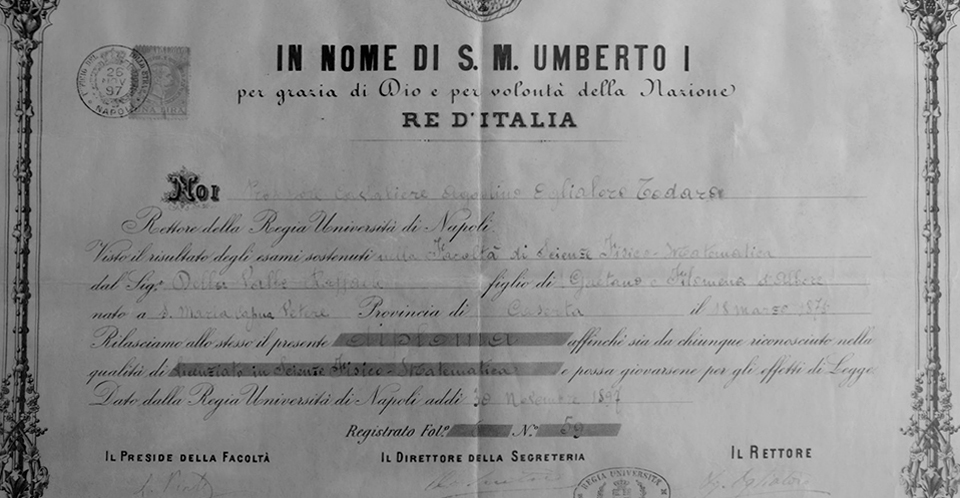 26
NOV
97
NAPOLI
UNA LIRA
IN NOME DI S. M. UMBERTO I
per grazia di Dio e per volontà della Nazione
RE D'ITALIA
NOI Agostino Oglialoro Todaro
Rettore della Regia Università di Napoli.
Visto il risultato degli esami sostenuti nella Facoltà di Scienze Fisico-Matematica
dal Sig. Della Valle Raffaele figlio di Gaetano e Filomena
nato a S. Maria Capua Vetere Provincia di Caserta il 18 marzo
Rilasciamo allo stesso il presente diploma affinchè sia da chiunque riconosciuto nella
qualità di Licenziato in Scienze Fisico-Matematica e possa giovarsene per gli effetti di Legge.
Dato dalla Regia Università di Napoli addì 30 Novembre 1897
Registrato Fol.° N.° 59
IL PRESIDE DELLA FACOLTÀ IL DIRETTORE DELLA SEGRETERIA IL RETTORE
REGIA UNIVERSITÀ